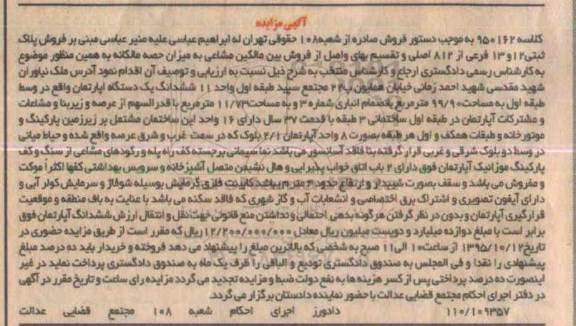 آگهی مزایده
کلاسه 950162 به موجب دستور فروش صادره از شعبه 108 حقوقی تهران له ابراهیم عباسی علیه منیر عباسی مبنی بر فروش پلاک
ثبتی 12 و 13 فرعی از 812 اصلی و تقسیم بهای واصل از فروش بین مالکین مشاعی به میزان حصه مالکانه به همین منظور موضوع
به کارشناس رسمی دادگستری ارجاع و کارشناس منتخب به شرح ذیل نسبت به ارزیابی و توصیف آن اقدام نمود آدرس ملک نیاوران
شهید مقدسی شهید احمد زمانی خیابان همایون پ 22 مجتمع سپید طبقه اول واحد 11 ششدانگ یک دستگاه اپارتمان واقع در وسط
طبقه اول به مساحت 99/90 مترمربع بانضمام انباری شماره 3 و به مساحت 11/73 مترمربع با قدرالسهم از عرصه و زیربنا و مشاعات
و مشترکات آپارتمان در طبقه اول ساختمانی 3 طبقه با قدمت 37 سال دارای 16 واحد این ساختمان مشتمل بر زیرزمین پارکینگ و
موتورخانه و طبقات همکف و اول هر طبقه بصورت 8 واحد آپارتمان 2/1 بلوک که در سمت غرب و شرق عرصه واقع شده و حیاط میانی
در وسط دو بلوک شرقی و غربی قرار گرفته بنا فاقد آسانسور می باشد نما سیمانی برجسته کف راه پله و رگودهای مشاعی از سنگ و کف
پارکینگ موزائیک آپارتمان فوق دارای 2 باب اتاق خواب پذیرایی و هال نشیمن متصل آشپزخانه و سرویس بهداشتی کفها اکثراً موکت
و مفروش می باشد و سقف بصورت شیبدار و ارتفاع حدود 3 متر می باشد کابینت فلزی گرمایش بوسیله شوفاژ و سرمایش کولر آبی و
دارای آیفون تصویری و اشتراک برق اختصاصی و انشعابات آب و گاز شهری که فاقد سکنه می باشد با عنایت به بافت منطقه و موقعیت
قرارگیری آپارتمان و بدون در نظر گرفتن هرگونه بدهی احتمالی و نداشتن منع قانونی جهت نقل و انتقال ارزش ششدانگ آپارتمان فوق
برابر است با مبلغ دوازده میلیارد و دویست میلیون ریال معادل 12/200/000/000 ریال که مقرر است از طریق مزایده حضوری در
تاریخ 1395/10/12 از ساعت 10 الی 11 صبح به شخصی که بالاترین مبلغ را پیشنهاد می دهد فروخته و خریدار باید ده درصد مبلغ
پیشنهادی را نقدا و فی المجلس به صندوق دادگستری تودیع و الباقی را ظرف یک ماه به صندوق دادگستری پرداخت نماید در غیر
اینصورت ده درصد پرداختی پس از کسر هزینه ها به نفع دولت ضبط و مزایده تجدید می گردد مزایده رای ساعت و تاریخ مقرر در آگهی
در دفتر اجرای احکام مجتمع قضایی عدالت با حضور نماینده دادستان برگزار می گردد.
110/109357 دادورز اجرای احکام شعبه 108 مجتمع قضایی عدالت